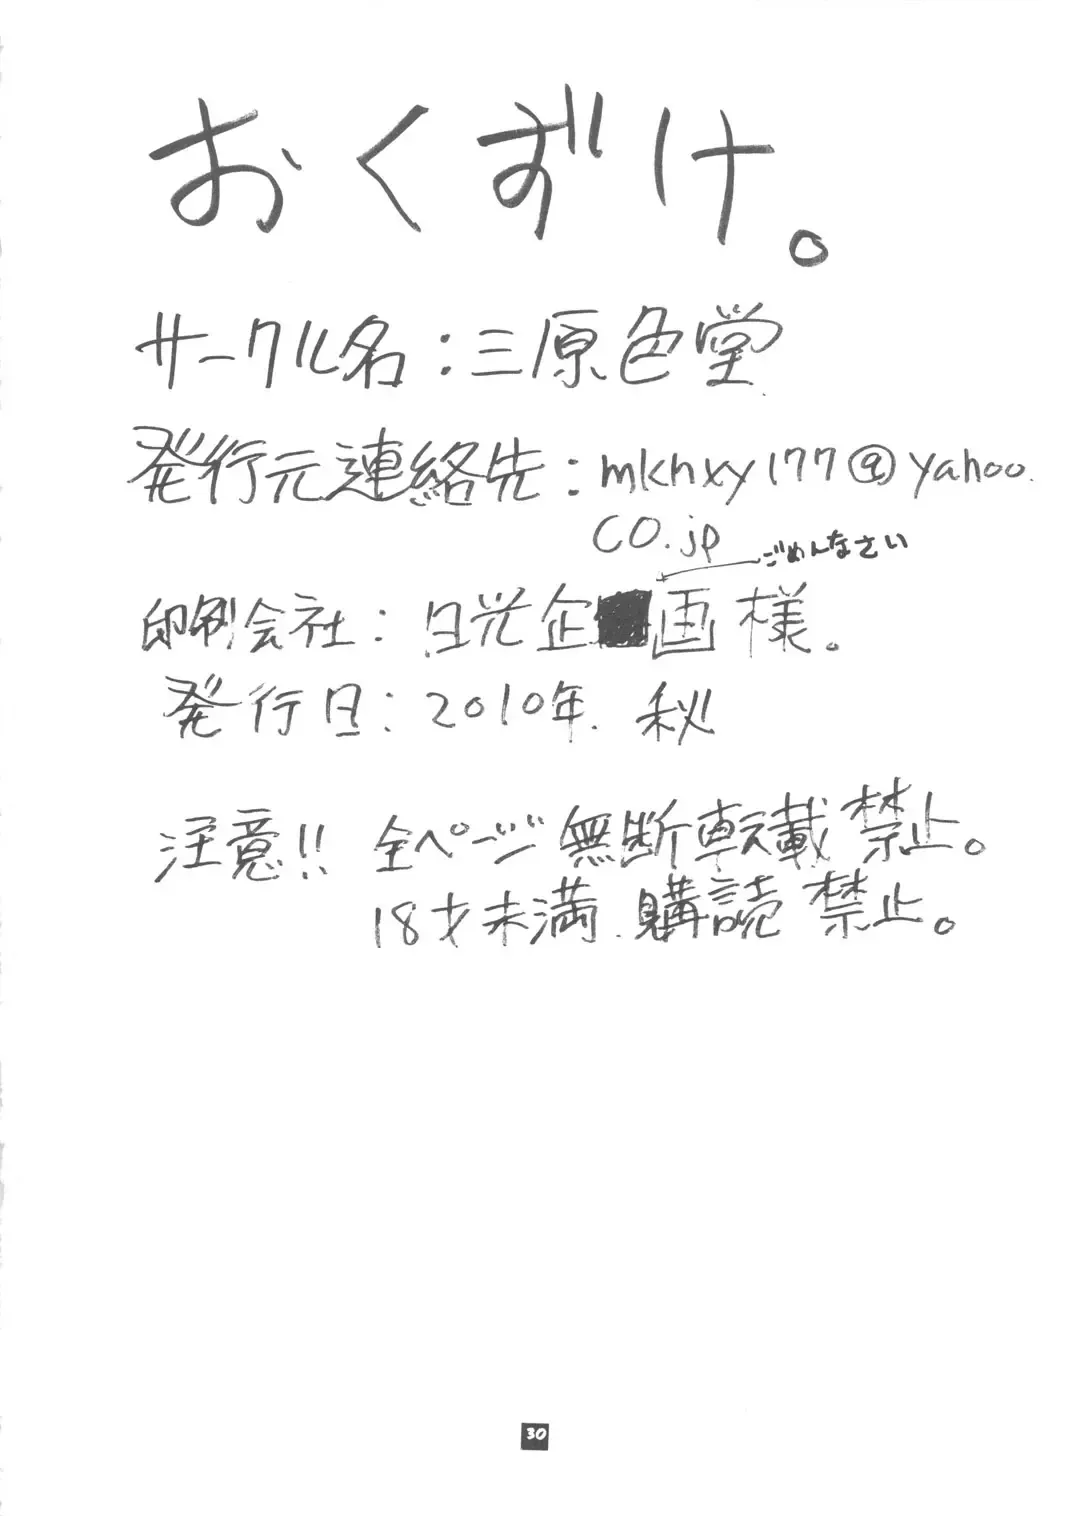 おくずけ。
サークル名：三原色堂
発行元連絡先：mknxy177@yahoo.
co.jp
ごめんなさい
印刷会社：日光企画様。
発行日：2010年.秋
注意!! 全ページ無断転載禁止。
18才未満.購読禁止。
30